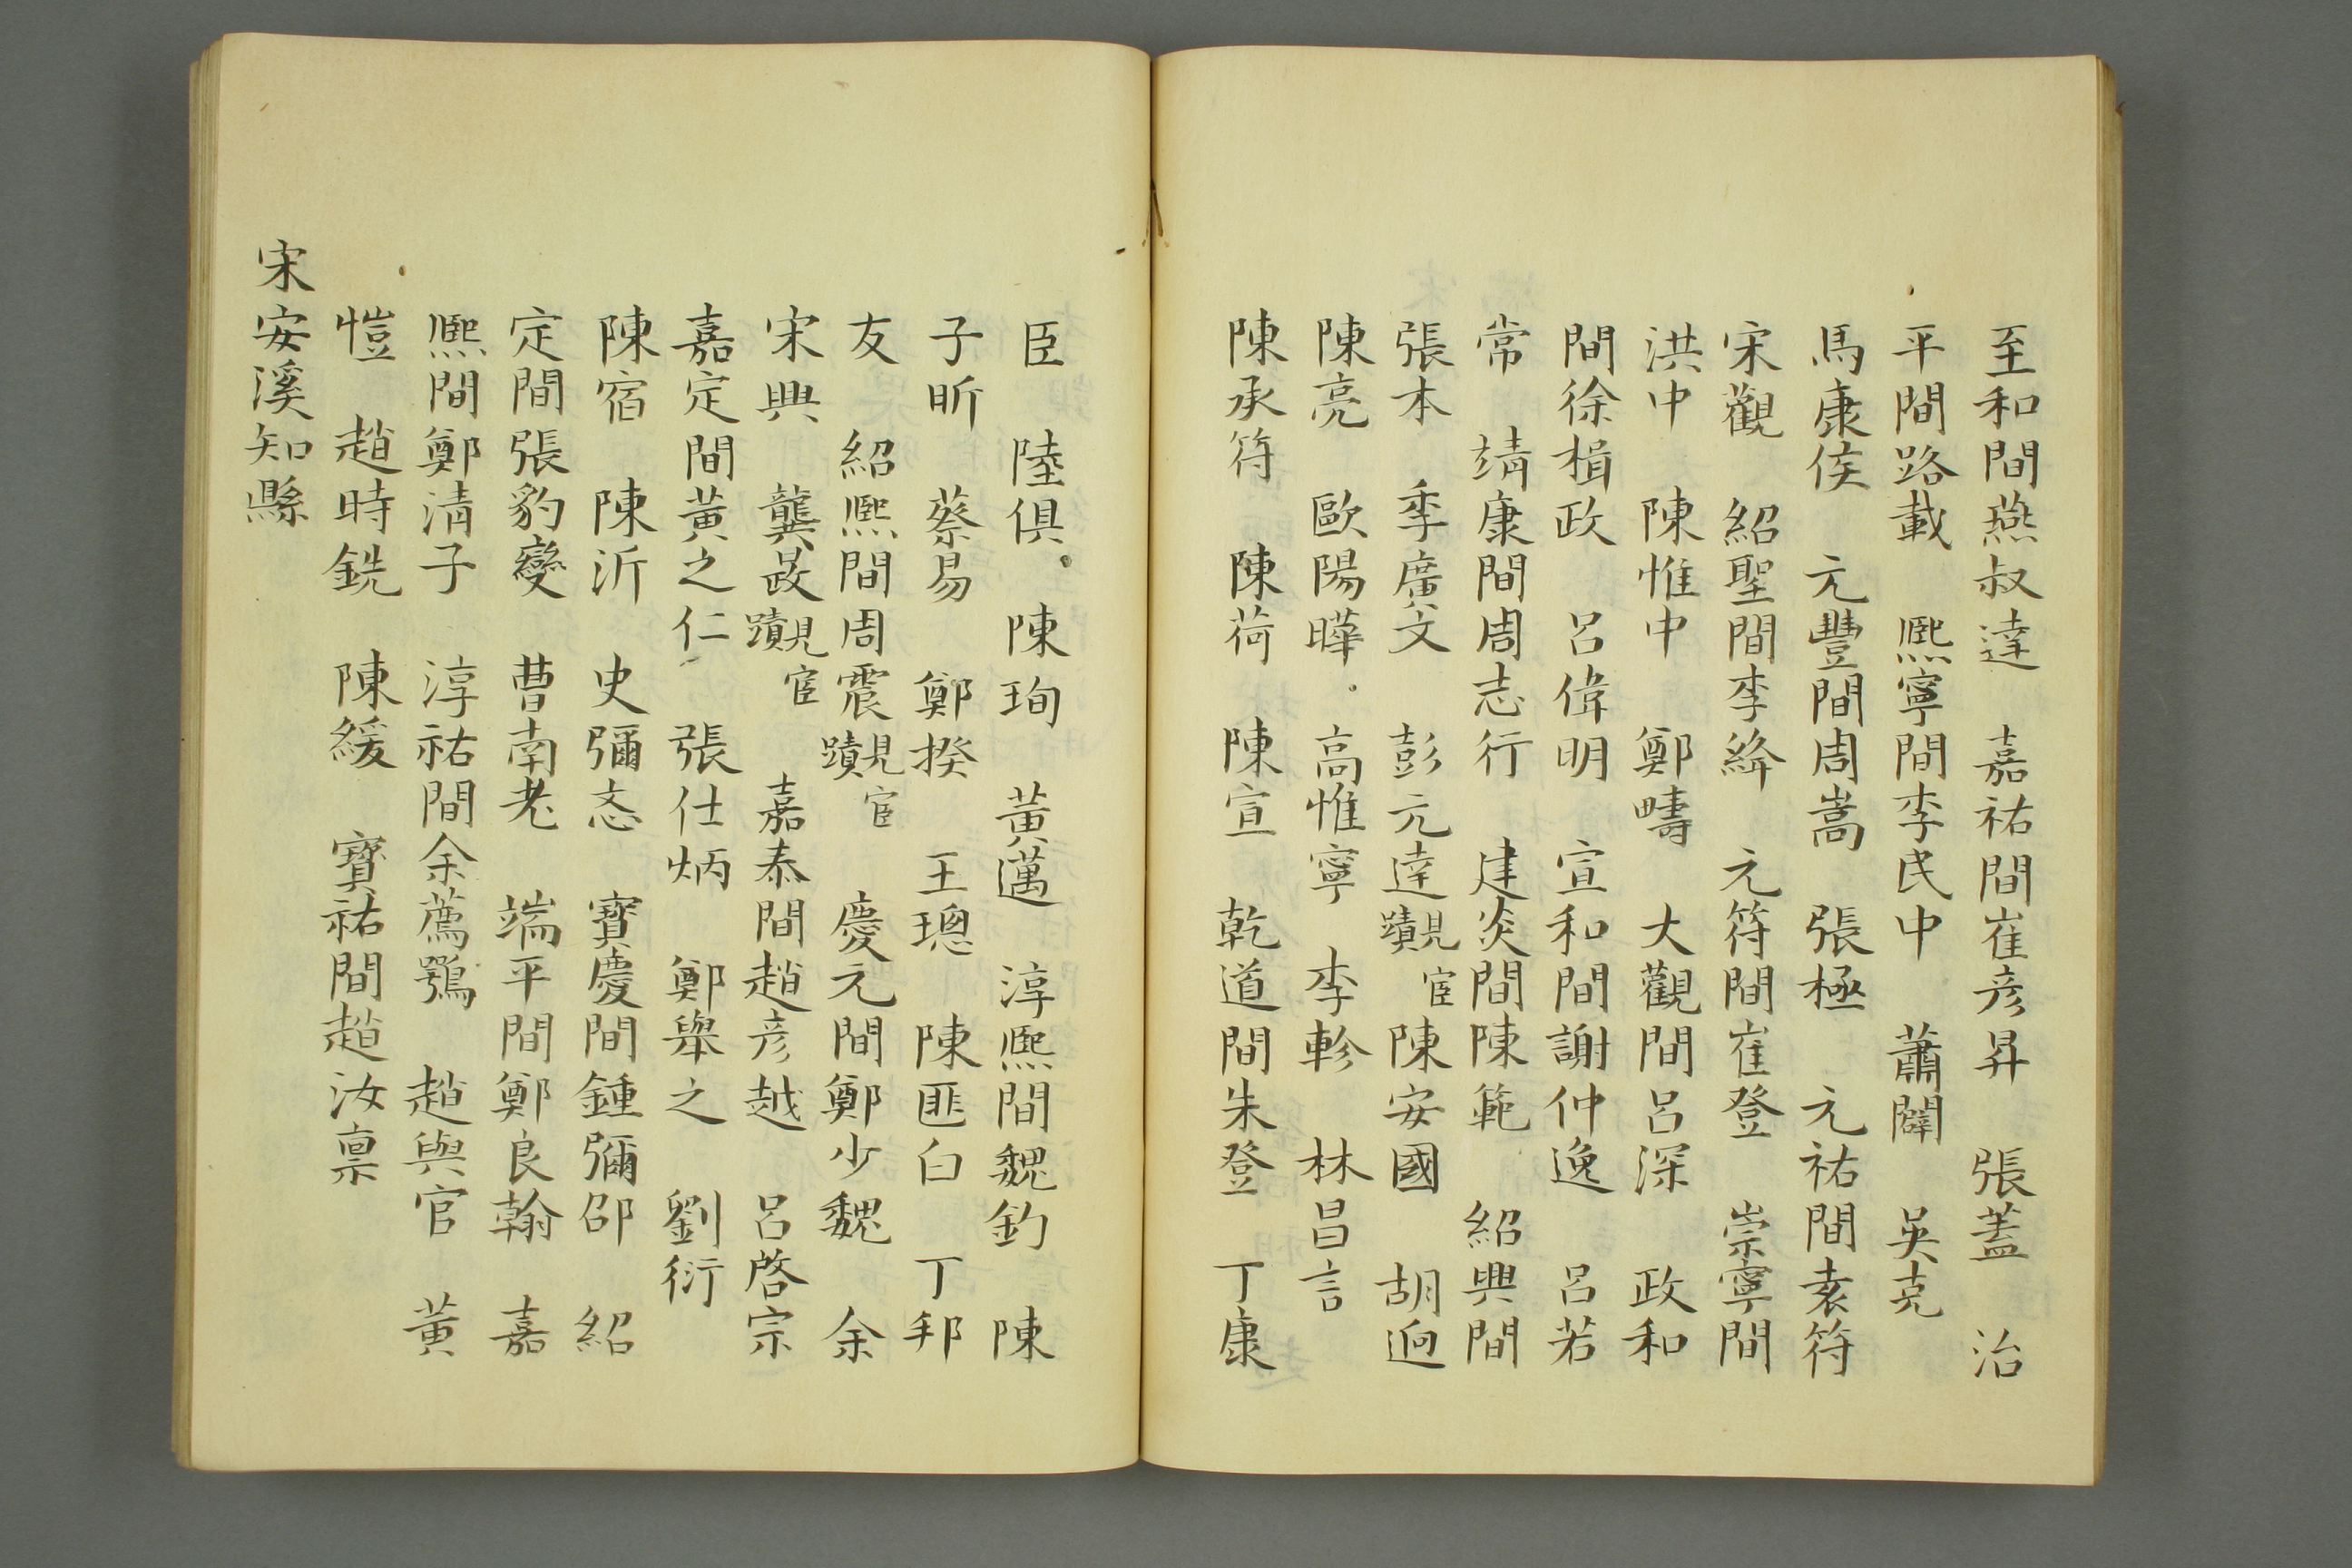 至和間燕叔達　嘉祐間崔彥昇　張蓋　治
平間路載　熈寧間李民中　蕭闢　吳克
馬康侯　元豐間周嵩　張極　元祐間袁符
宋觀　紹聖間李絳　元符間崔登　崇寧間
洪中　陳惟中　鄭疇　大觀間呂深　政和
間徐楫政　呂偉明　宣和間謝仲逸　呂若
常　靖康間周志行　建炎間陳範　紹興間
張本　季廣文　彭元達見宦蹟陳安國　胡逈
陳亮　歐陽曄　高惟寧　李軫　林昌言
陳承符　陳荷　陳宣　乾道間朱登　丁康
臣　陸俱　陳珣　黃邁　淳熈間魏釣　陳
子昕　蔡易　鄭揆　王璁　陳匪白　丁邦
友　紹熈間周震見宦蹟　慶元間鄭少魏　余
宋興　龔晸見宦蹟　嘉泰間趙彥越　呂啓宗
嘉定間黃之仁　張仕炳　鄭舉之　劉衍
陳宿　陳沂　史彌忞　寶慶間鍾彌邵　紹
定間張豹變　曹南老　端平間鄭良翰　嘉
熈間鄭清子　淳祐間余薦鶚　趙與官　黃
愷　趙時銑　陳緩　寶祐間趙汝禀
宋安溪知縣